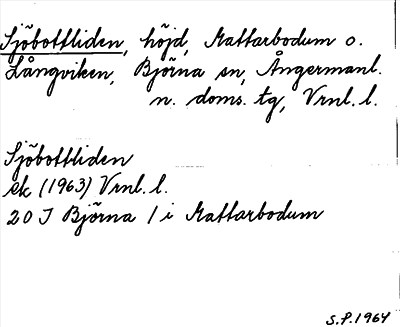 Sjöbottliden, höjd, Mattarbodum o.
Långviken, Björna sn, Ångermanl.
n. doms. tg, Vrnl. l.
Sjöbottliden
ek (1963) Vrnl. l.
20 J Björna 1 i Mattarbodum
S.P. 1964